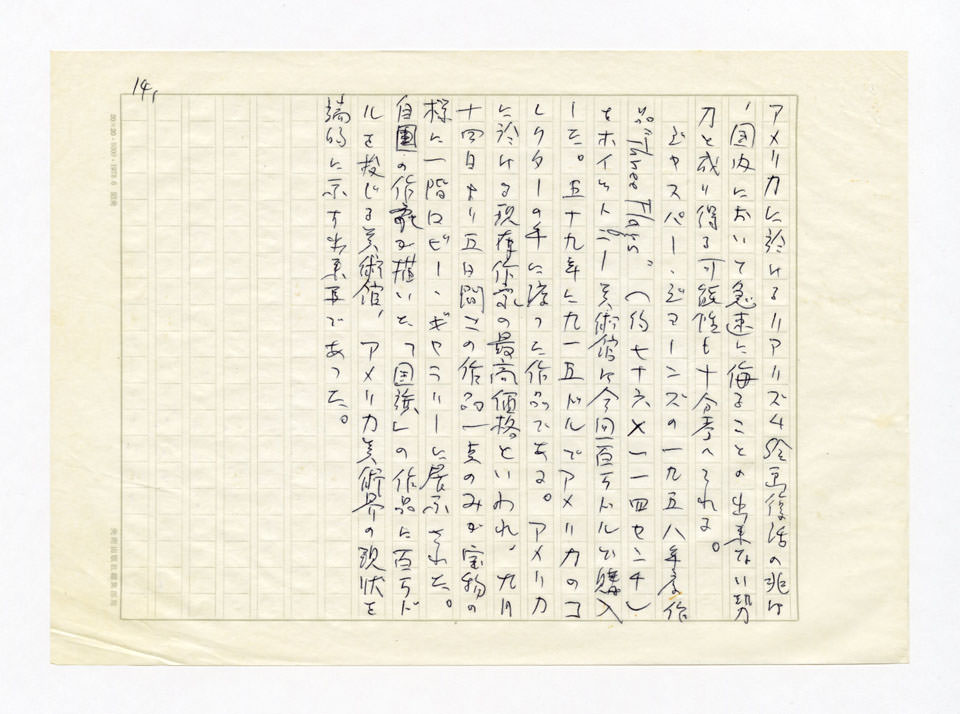 14,
アメリカに於けるリアリズム絵画復活の兆は
、国内において急速に侮ることの出来ない勢
力と成り得る可能性も十分考へられる。
ジャスパー・ジョーンズの一九五八年度作
品"Three Flags"(約七十六×一一四センチ)
をホイットニー美術館は今回百万ドルで購入
した。五十九年に九一五ドルでアメリカのコ
レクターの手に渡った作品である。アメリカ
に於ける現存作家の最高価格といわれ、九月
十四日より五日間この作品一点のみが宝物の
様に一階ロビー・ギャラリーに展示された。
自国の作家が描いた「国旗」の作品に百万ド
ルを投じる美術館、アメリカ美術界の現状を
端的に示す出来事であった。